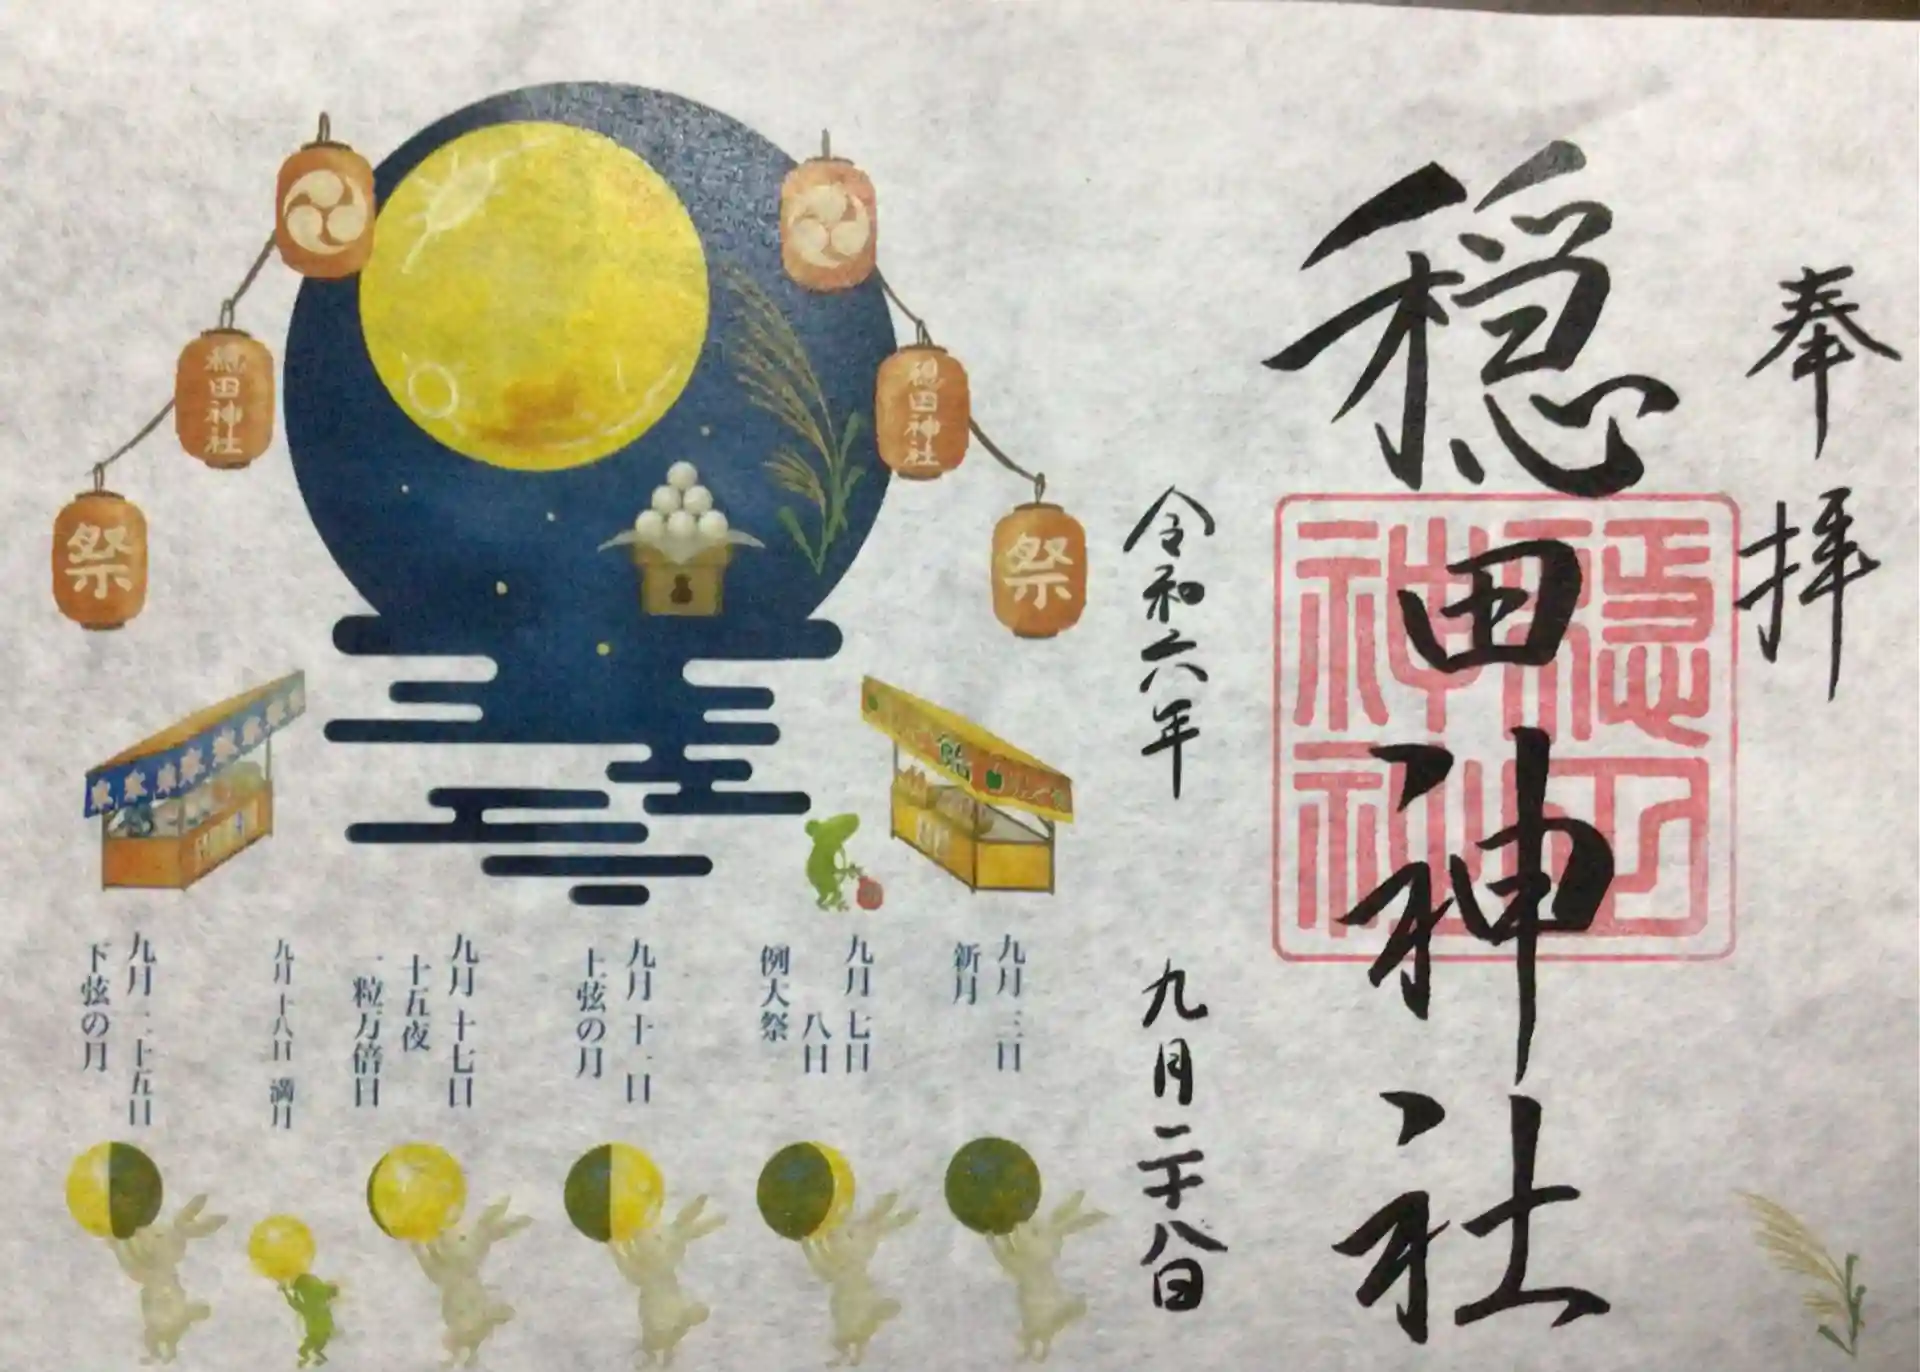 奉拝
穏田神社
穏田神社
令和六年 九月二十八日
祭
穏田神社
穏田神社
祭
飴
九月三日
新月
九月七日
八日
例大祭
九月十一日
上弦の月
九月十七日
十五夜
一粒万倍日
九月十八日 満月
九月二十五日
下弦の月